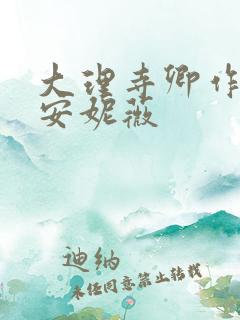 大理寺卿作
安妮薇
迪纳
未经同意禁止转载